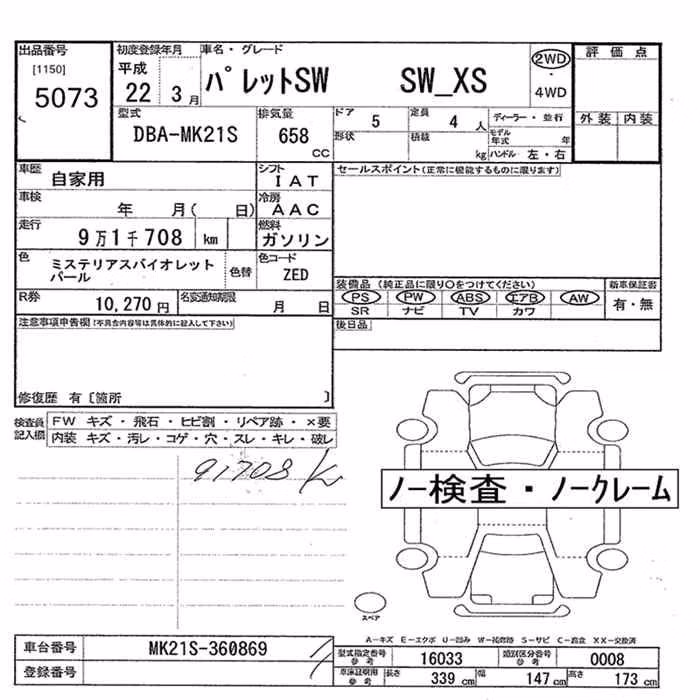 出品番号
[1150]
5073
初度登録年月
平成
22 3 月
車名・グレード
パレットSW SW_XS
2WD
・
4WD
評価点
外装 内装
型式
DBA-MK21S
排気量
658
CC
ドア 5
定員 4 人
形状
積載 kg
ディーラー・並行
モデル年式 年
ハンドル 左・右
車歴
自家用
シフト
IAT
車検
年 月( 日)
冷房
AAC
走行
9万1千708 km
燃料
ガソリン
色
ミステリアスバイオレット
パール
色替
色コード
ZED
R券 10,270円
名変通知期限 月 日
セールスポイント(正常に機能するものに限ります)
装備品 (純正品に限り〇をつけてください)
PS PW ABS エアB AW
SR ナビ TV カワ
新車保証書
有・無
後日品
注意事項申告欄(不具合内容等は具体的に記入して下さい)
修復歴 有〔箇所 〕
検査員記入欄
FW キズ・飛石・ヒビ割・リペア跡・×要
内装 キズ・汚レ・コゲ・穴・スレ・キレ・破レ
91708K
ノー検査・ノークレーム
スペア
A-キズ E-エクボ U-凹み W-補修跡 S-サビ C-腐食 XX-交換済
車台番号 MK21S-360869
登録番号
型式指定番号
参考
16033
類別区分番号
参考
0008
車検証明用
参考
長さ 339 cm
幅 147 cm
高さ 173 cm